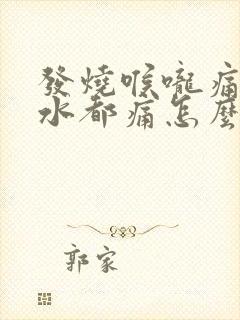 發燒喉嚨痛
水都痛怎麼
郭家